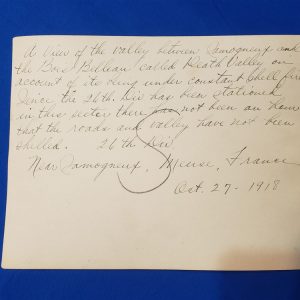 A view of the valley between Samogneux and
the Bois Belleau called Death Valley on
account of its being under constant shell fire
Since the 26th. Div has been stationed
in this sector there has not been an hour
that the roads and valley have not been
shelled. 26th Div.
Near Samogneux, Meuse, France
Oct. 27-1918